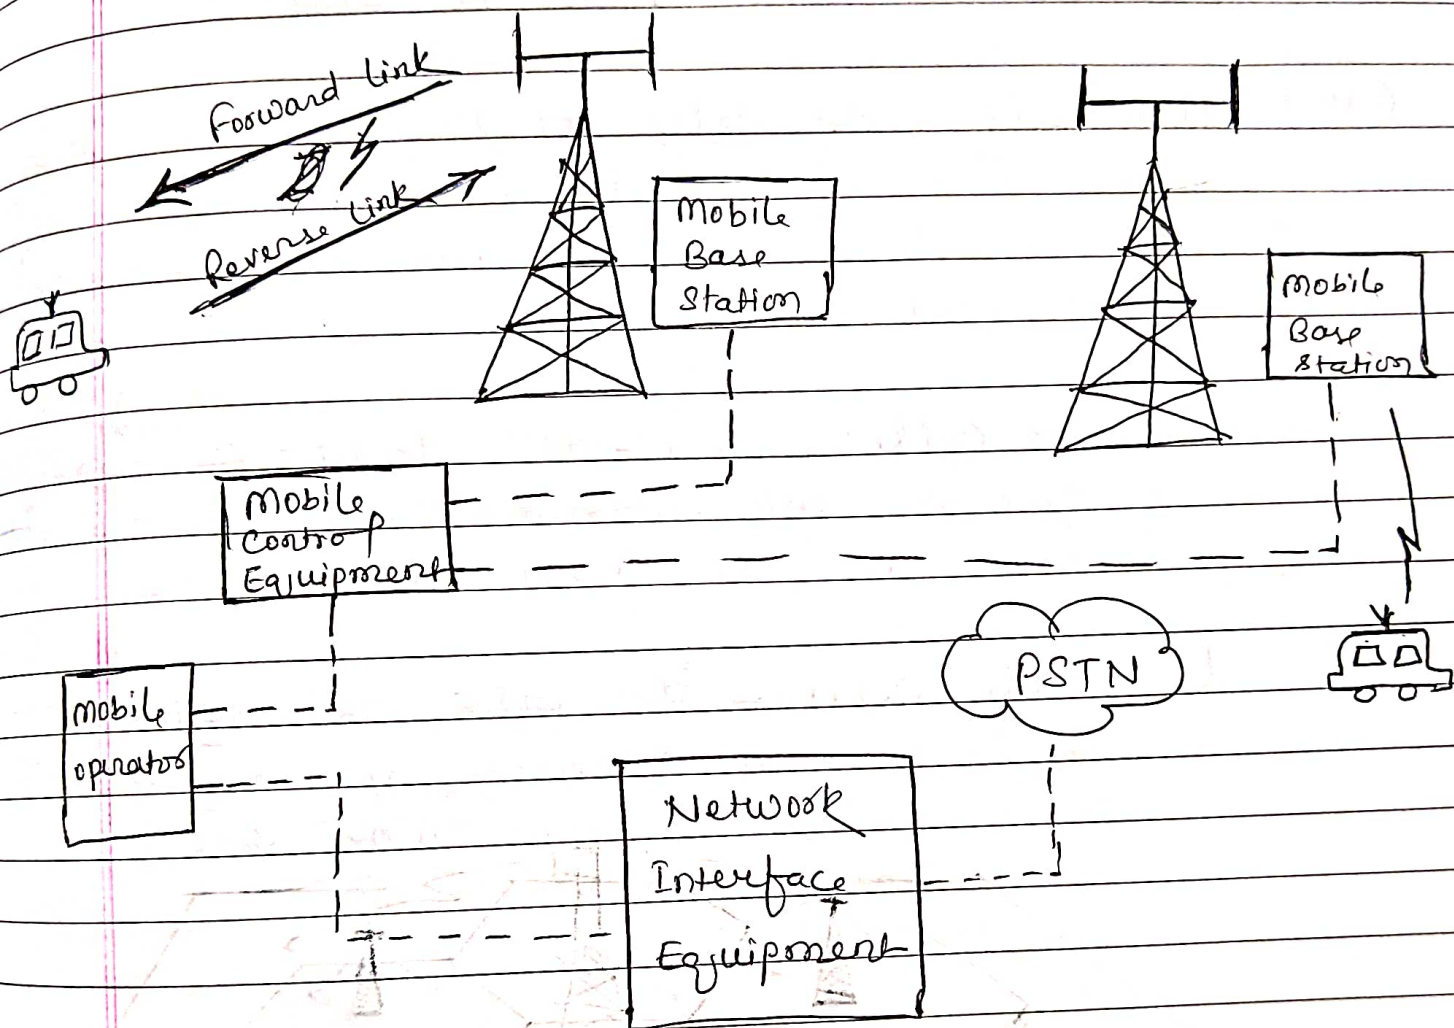 Forward link
Reverse link
Mobile
Base
Station
Mobile
Base
Station
Mobile
Control
Equipment
Mobile
operator
PSTN
Network
Interface
Equipment